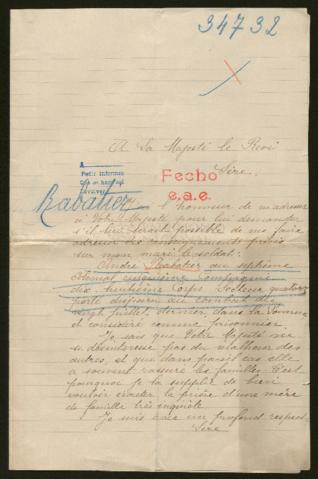 34732
A Sa Majesté le Roi
Sire,
A
Petit Informe
Fecho
e.a.e.
Rabatier
l'honneur de m'adresser
à Votre Majesté pour lui demander
s'il lui serait possible de me faire
adresser des renseignements précis
sur mon mari le soldat:
André Rabatier au septième
Colonial cinquième Compagnie
dix huitième Corps Secteur quatorze
porté disparu au combat du
vingt juillet dernier, dans la Somme
et considéré comme prisonnier.
Je sais que Votre Majesté ne
se désintéresse pas du malheur des
autres, et que dans pareil cas elle
a souvent rassuré les familles. C'est
pourquoi je la supplie de bien
vouloir écouter la prière d'une mère
de famille très inquiète.
Je suis avec un profond respect
Sire